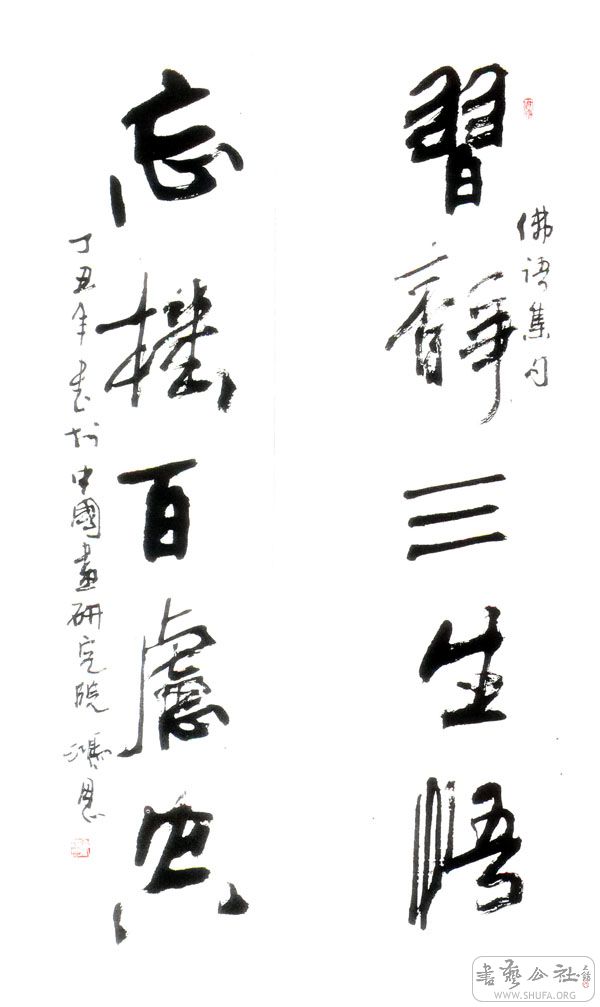 佛語集句
習靜三生悟
忘機百慮
丁丑年書於中國畫研究院
書藝公社
WWW.SHUFA.ORG